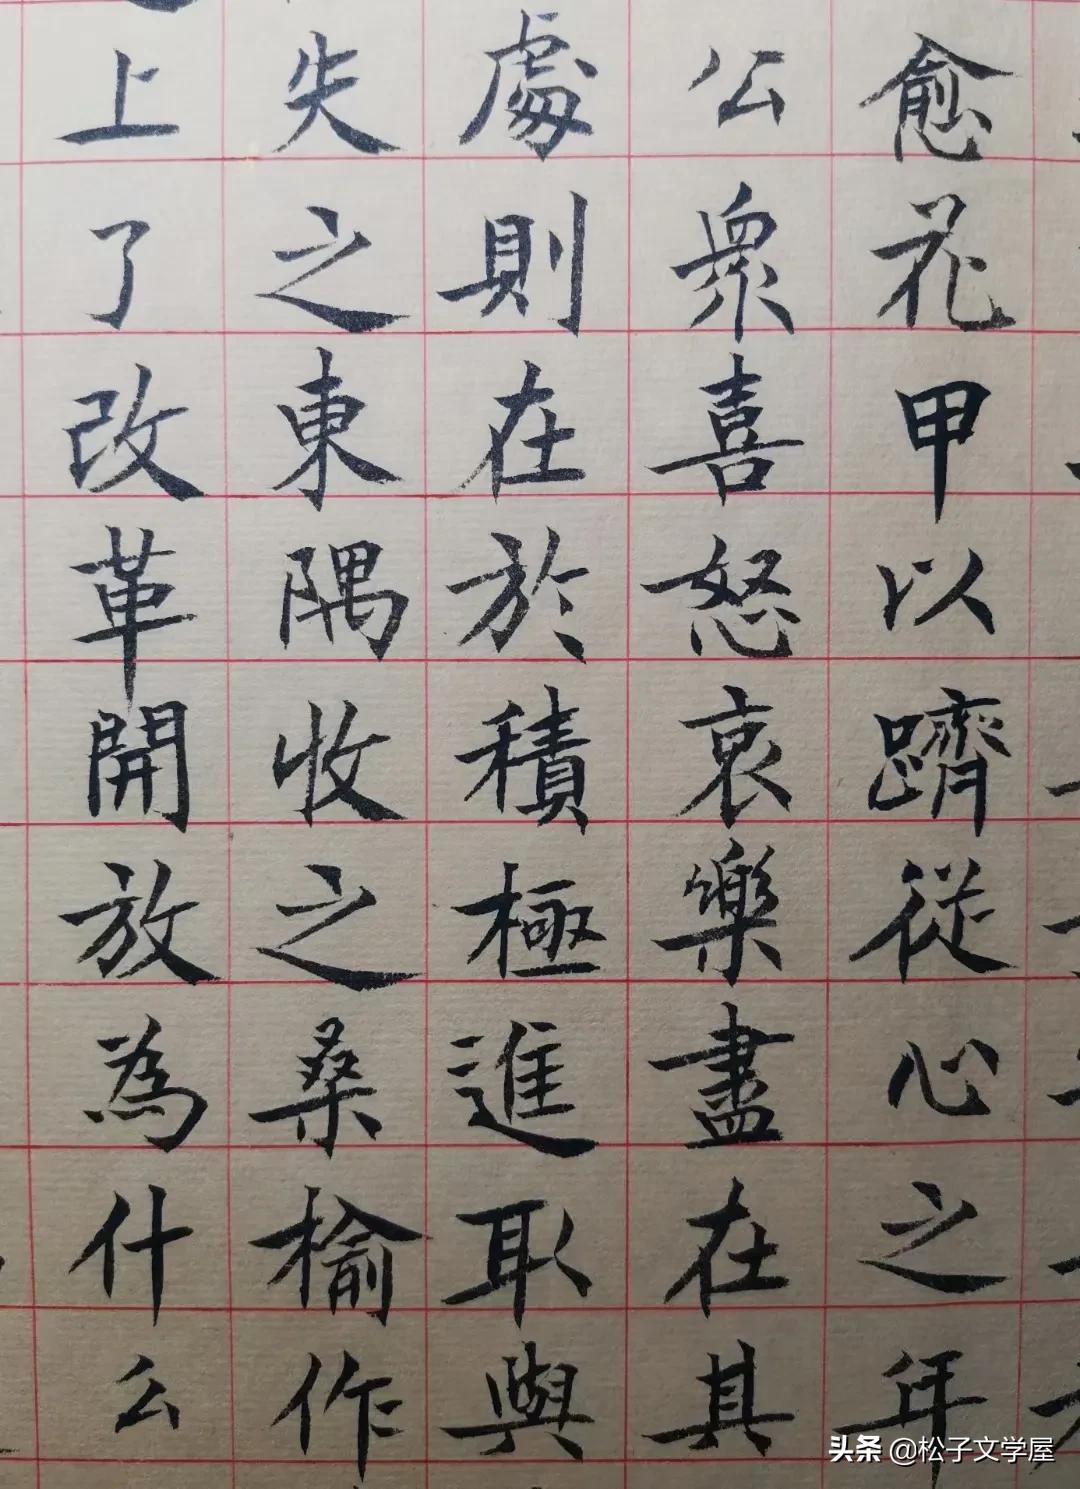 愈花甲以躋從心之年
公衆喜怒哀樂盡在其
處則在於積極進取與
失之東隅收之桑榆作
上了改革開放為什么
头条 @松子文学屋